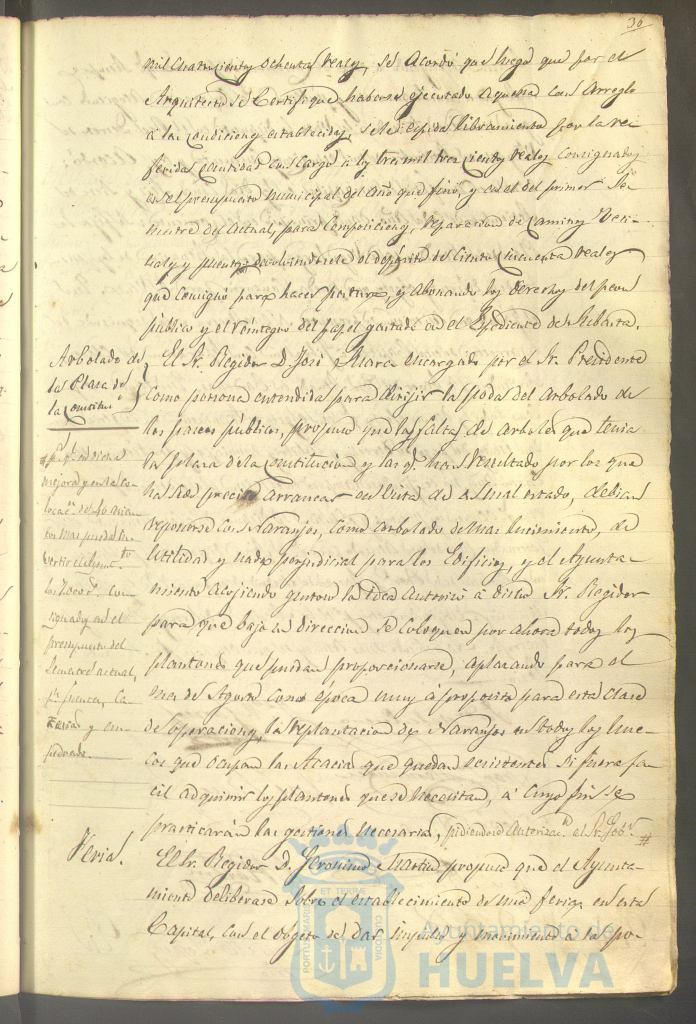 36
mil cuatrocientos ochenta reales, se acordó que luego que por el
Arquitecto se Certifique haberse ejecutado aquella con arreglo
a las condiciones establecidas, se le espida libramiento por la re
ferida cantidad con cargo a los tres mil trescientos reales consignados
en el presupuesto municipal del año que finó, y en el del primer Se
mestre del actual, para composiciones, reparacion de caminos veci-
nales y puentes, devolviendosele el depósito de ciento cincuenta reales
que consignó para hacer postura, y abonando los derechos del peon
público y el reintegro del papel gastado en el Espediente de Subasta.
Arbolado de
la Plaza de
la Constitucn
El Sr. Regidor D. José Marca encargado por el Sr. Presidente
como persona entendida para dirijir la poda del arbolado de
los paseos públicos, propuso que las faltas de arboles que tenia
la plaza de la Constitucion y las qe. han resultado por los que
ha sido preciso arrancar en vista de su mal estado, debian
reponerse con Naranjos, como arbolado de mas lucimiento, de
utilidad y nada perjudicial para los edificios, y el Ayunta-
miento acojiendo gustoso la idea autorizó á dicho Sr. Regidor
para que bajo su direccion se coloquen por ahora todos los
plantones que puedan proporcionarse, aplazando para el
mes de Agosto como época muy á proposito para esta clase
de operaciones, la replantacion de Naranjos en todos los hue-
cos que ocupan las Acacias que quedan ecsistentes si fuera fa-
cil adquirir los plantones que se necesitan, á cuyo fin se
practicarán las gestiones necesarias, pidiendose autorizacn. al Sr. Gobr. #
# pa. qe. en dicha
mejora y en la co-
locacn. de
tos mas pueda in-
vertir el Ayuntto.
los con-
signados en el
presupuesto del
Semestre actual,
pa. fuentes, Ca-
ñerias y em-
pedrado.
Feria.
El Sr. Regidor D. Jeronimo Martin, propuso que el Ayunta-
miento deliberase sobre el establecimiento de una feria en esta
Capital, con el objeto de dar impulso y movimiento a la po-
PORTUS MARIS ET TERRAE CUSTODIA
Ayuntamiento de
HUELVA